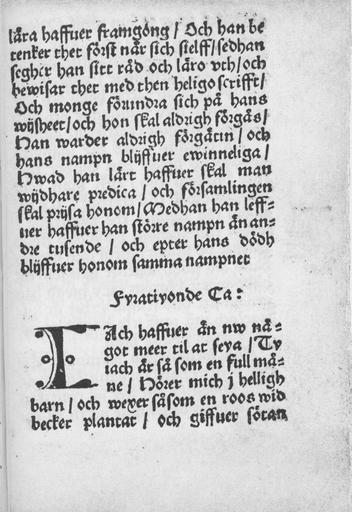 lära haffuer framgong / Och han be
tenker thet först när sich sielff / sedhan
segher han sitt råd och läro vth / och
bewisar thet med then heligo scrifft /
Och monge förundra sich på hans
wijsheet / och hon skal aldrigh förgås /
Han warder aldrigh förgätin / och
hans nampn blijffuer ewinneliga /
Hwad han lärt haffuer skal man
wijdhare predica / och församlingen
skal prijsa honom / Medhan han leff-
uer haffuer han större nampn än an-
dre tusende / och epter hans dödh
blijffuer honom samma nampnet
Fyratiyonde Ca:
IAch haffuer än nw nå-
got meer til at seya / Ty
iach är så som en full må-
ne / Hörer mich j helligh
barn / och wexer såsom en roos wid
becker plantat / och giffuer sötan